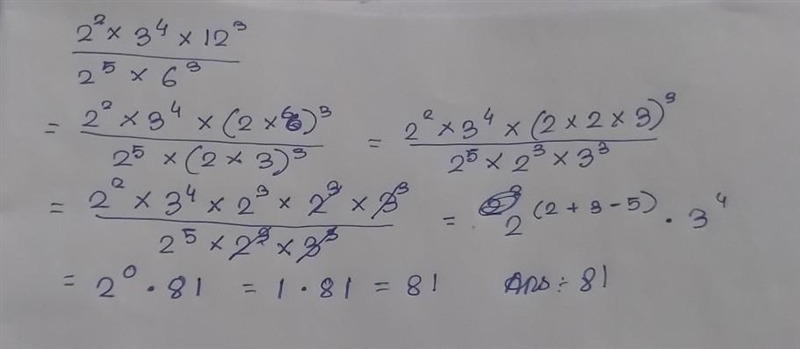 2² × 3⁴ × 12³ / 2⁵ × 6³
= 2² × 3⁴ × (2 × 6)³ / 2⁵ × (2 × 3)³ = 2² × 3⁴ × (2 × 2 × 3)³ / 2⁵ × 2³ × 3³
= 2² × 3⁴ × 2³ × 2³ × 3³ / 2⁵ × 2³ × 3³ = 2^(2 + 3 - 5) · 3⁴
= 2⁰ · 81 = 1 · 81 = 81 Ans :- 81